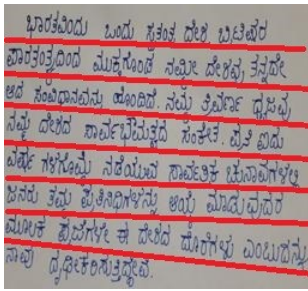 ಭಾರತವಿಂದು ಒಂದು ಸ್ವತಂತ್ರ ದೇಶ. ಬ್ರಿಟಿಷರ
ಪಾರತಂತ್ರ್ಯದಿಂದ ಮುಕ್ತಗೊಂಡ ನಮ್ಮೀ ದೇಶವು ತನ್ನದೇ
ಆದ ಸಂವಿಧಾನವನ್ನು ಹೊಂದಿದೆ. ನಮ್ಮ ತ್ರಿವರ್ಣ ಧ್ವಜವು
ನಮ್ಮ ದೇಶದ ಸಾರ್ವಭೌಮತ್ವದ ಸಂಕೇತ. ಪ್ರತಿ ಐದು
ವರ್ಷ ಗಳಿಗೊಮ್ಮೆ ನಡೆಯುವ ಸಾರ್ವತ್ರಿಕ ಚುನಾವಣೆಗಳಲ್ಲಿ
ಜನರು ತಮ್ಮ ಪ್ರತಿನಿಧಿಗಳನ್ನು ಆಯ್ಕೆ ಮಾಡುವುದರ
ಮೂಲಕ ಪ್ರಜೆಗಳೇ ಈ ದೇಶದ ದೊರೆಗಳು ಎಂಬುದನ್ನು
ನಾವು ದೃಢೀಕರಿಸುತ್ತಿದ್ದೇವೆ.